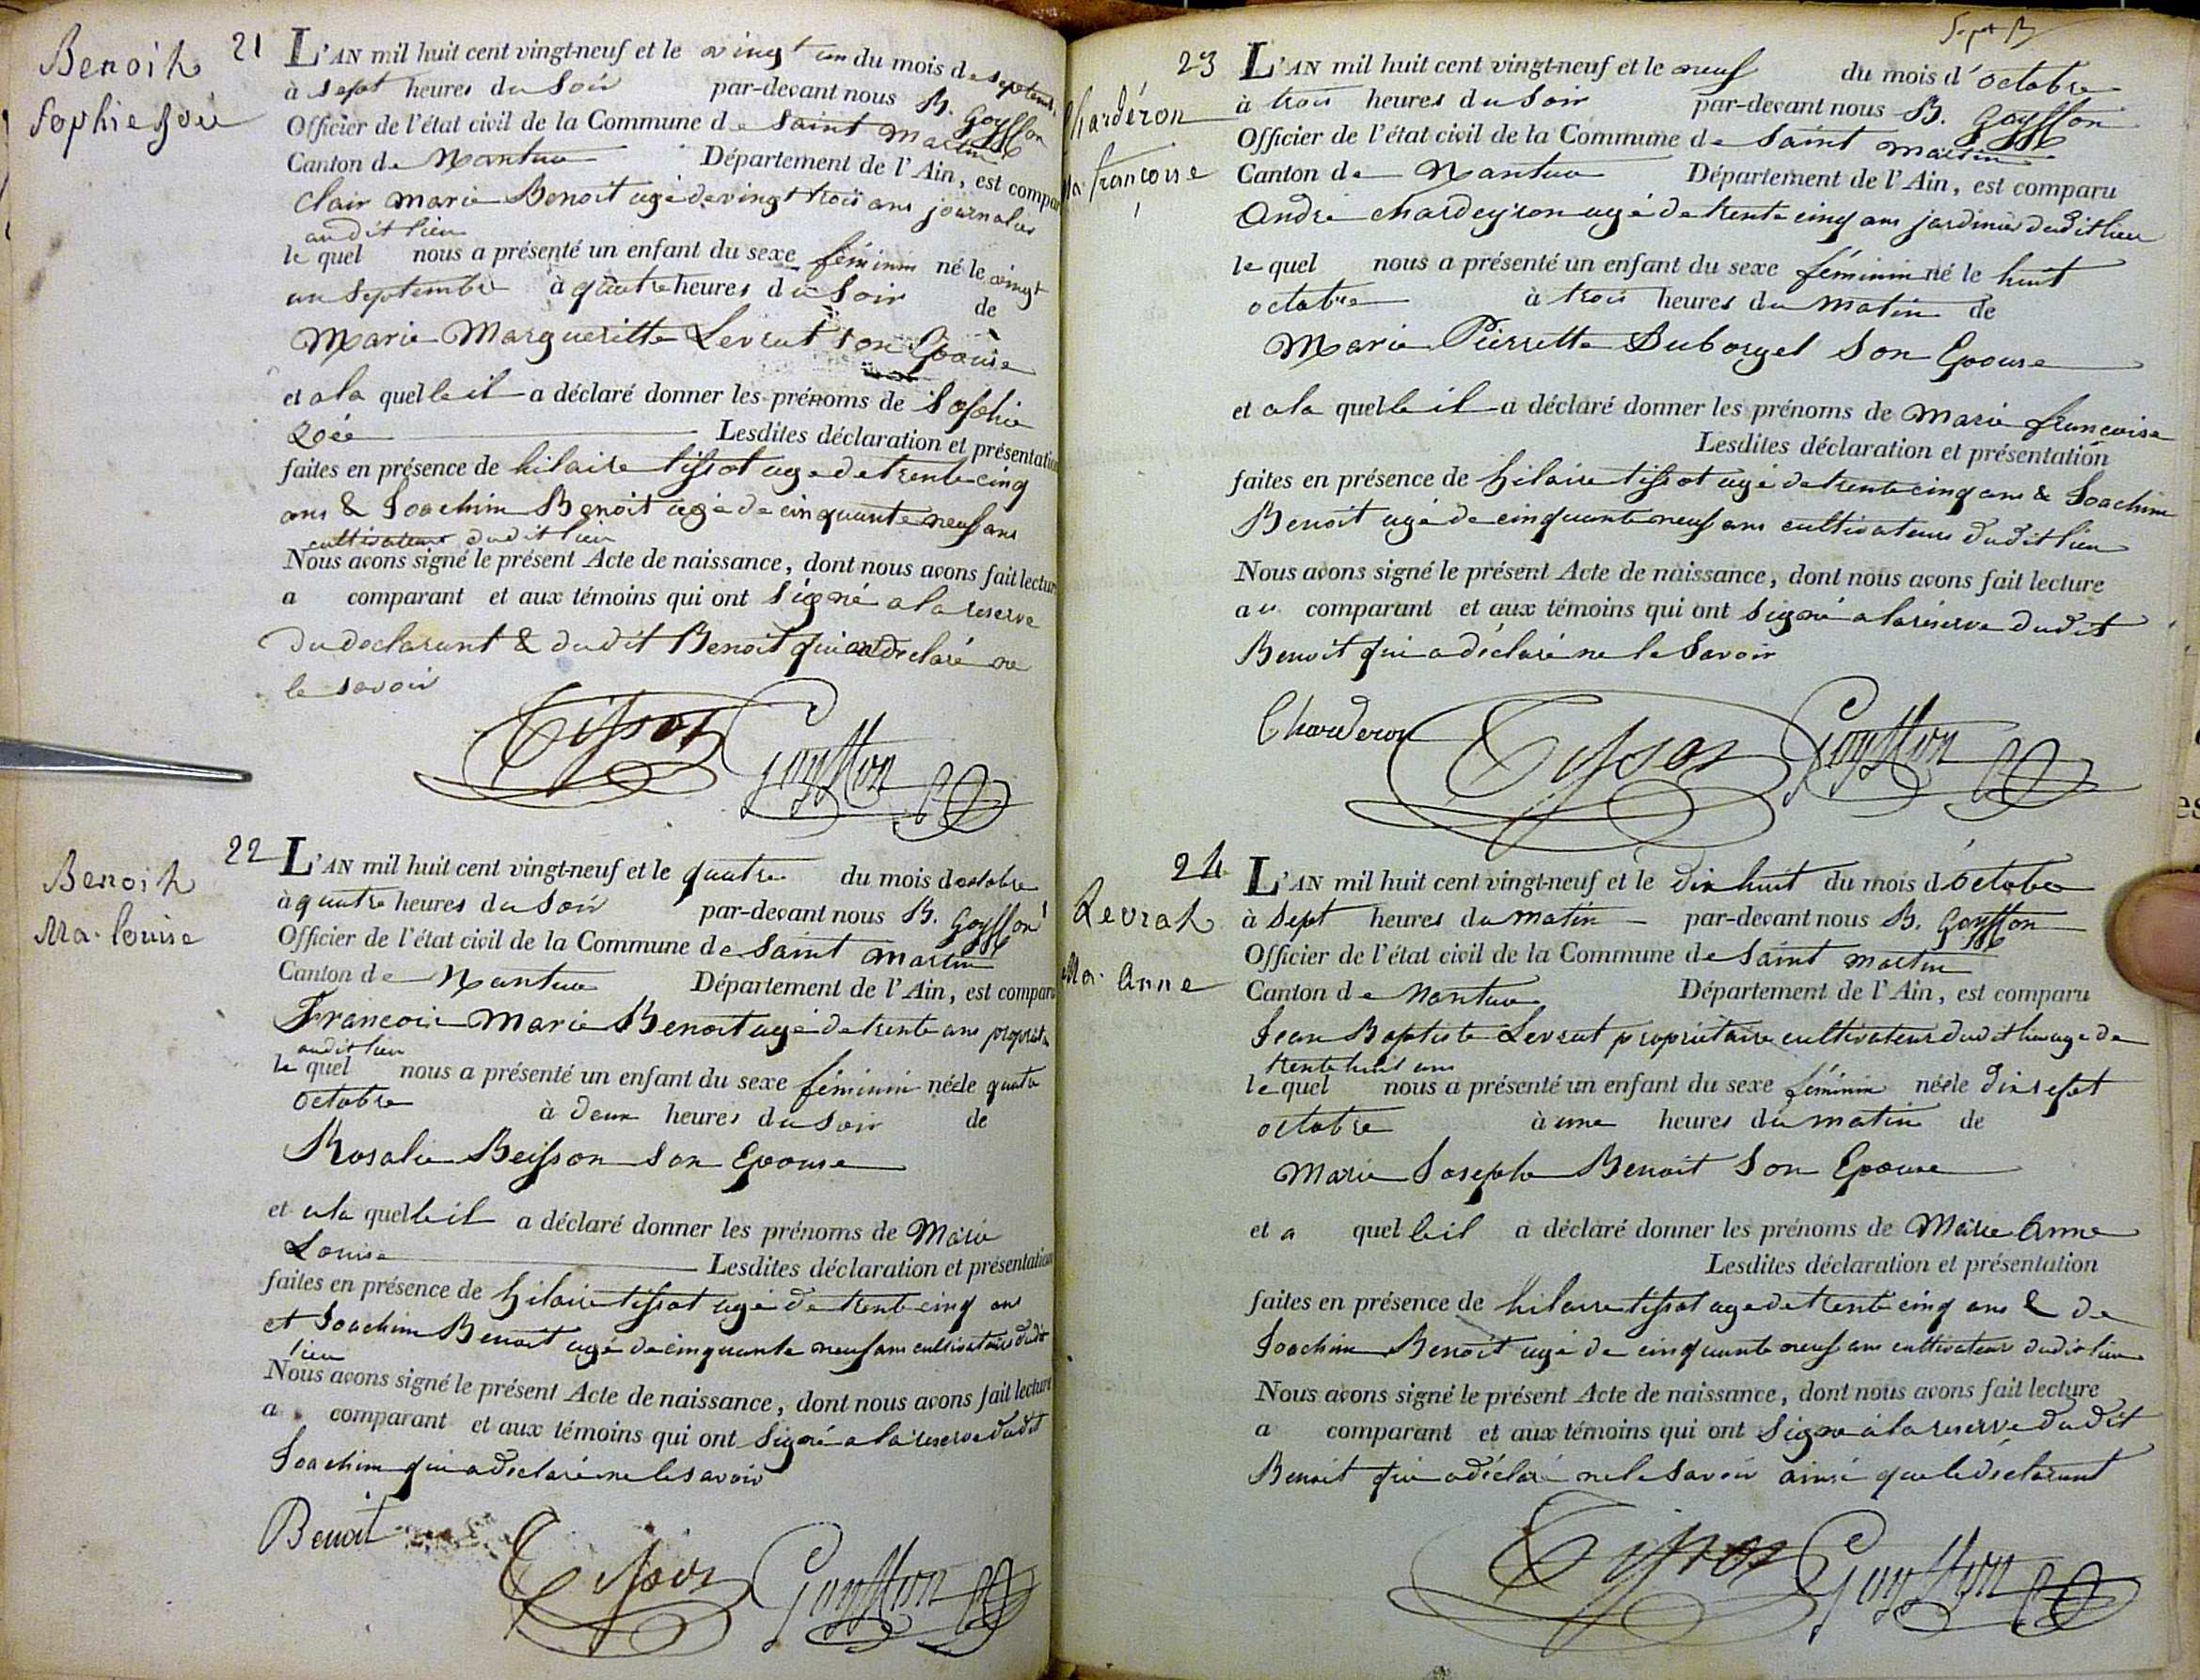 Benoit
Sophie Zoée
21
L'AN mil huit cent vingt-neuf et le vingt un du mois de septembre
à sept heures du soir par-devant nous B. Goyffon
Officier de l'état civil de la Commune de Saint Martin
Canton de Nantua Département de l'Ain, est comparu
Clair Marie Benoit agé de vingt trois ans journalier
audit lieu
le quel nous a présenté un enfant du sexe féminin né le vingt
un Septembre à quatre heures du soir de
Marie Margueritte Levrat son Epouse
et a la quelle il a déclaré donner les prénoms de Sophie
Zoée Lesdites déclaration et présentation
faites en présence de hilaire tissot age de trente cinq
ans & Joachim Benoit agé de cinquante neuf ans
cultivateurs dudit lieu
Nous avons signé le présent Acte de naissance, dont nous avons fait lecture
a comparant et aux témoins qui ont signé a la reserve
du declarant & du dit Benoit qui on declaré ne
le savoir
Tissot Goyffon
Benoit
Ma. louise
22
L'AN mil huit cent vingt-neuf et le quatre du mois d octobre
à quatre heures du soir par-devant nous B. Goyffon
Officier de l'état civil de la Commune de Saint Martin
Canton de Nantua Département de l'Ain, est comparu
Francois Marie Benoit agé de trente ans propriét.
audit lieu
le quel nous a présenté un enfant du sexe féminin née le quatre
octobre à deux heures du soir de
Rosalie Beisson son Epouse
et a la quelle il a déclaré donner les prénoms de Marie
Louise Lesdites déclaration et présentation
faites en présence de hilaire tissot agé de trente cinq ans
et Joachim Benoit agé de cinquante neuf ans cultivateurs dudit
lieu
Nous avons signé le présent Acte de naissance, dont nous avons fait lecture
a comparant et aux témoins qui ont signé a la reserve dudit
Joachim qui a declaré ne le savoir
Benoit Tissot Goyffon
Chardéron
Ma. françoise
23
L'AN mil huit cent vingt-neuf et le neuf du mois d'octobre
à trois heures du soir par-devant nous B. Goyffon
Officier de l'état civil de la Commune de Saint Martin
Canton de Nantua Département de l'Ain, est comparu
André chardeyron agé de trente cinq ans jardinier dudit lieu
le quel nous a présenté un enfant du sexe féminin né le huit
octobre à trois heures du matin de
Marie Pierrette Duborgel son Epouse
et a la quelle il a déclaré donner les prénoms de Marie françoise
Lesdites déclaration et présentation
faites en présence de hilaire tissot agé de trente cinq ans & Joachim
Benoit agé de cinquante neuf ans cultivateurs dudit lieu
Nous avons signé le présent Acte de naissance, dont nous avons fait lecture
au comparant et aux témoins qui ont signé a la réserve dudit
Benoit qui a déclaré ne le savoir
Charderon Tissot Goyffon
Levrat
Ma. Anne
24
L'AN mil huit cent vingt-neuf et le dix huit du mois d'octobre
à sept heures du matin par-devant nous B. Goyffon
Officier de l'état civil de la Commune de Saint Martin
Canton de Nantua Département de l'Ain, est comparu
Jean Baptiste Levrat propriétaire cultivateur dudit lieu age de
trente huit ans
le quel nous a présenté un enfant du sexe féminin née le dix sept
octobre à une heures du matin de
Marie Josephe Benoit son Epouse
et a quelle il a déclaré donner les prénoms de Marie Anne
Lesdites déclaration et présentation
faites en présence de hilaire tissot age de trente cinq ans & de
Joachim Benoit agé de cinquante neuf ans cultivateur dudit lieu
Nous avons signé le présent Acte de naissance, dont nous avons fait lecture
a comparant et aux témoins qui ont signé à la reserve dudit
Benoit qui a déclaré ne le savoir ainsi que le déclarant
Tissot Goyffon